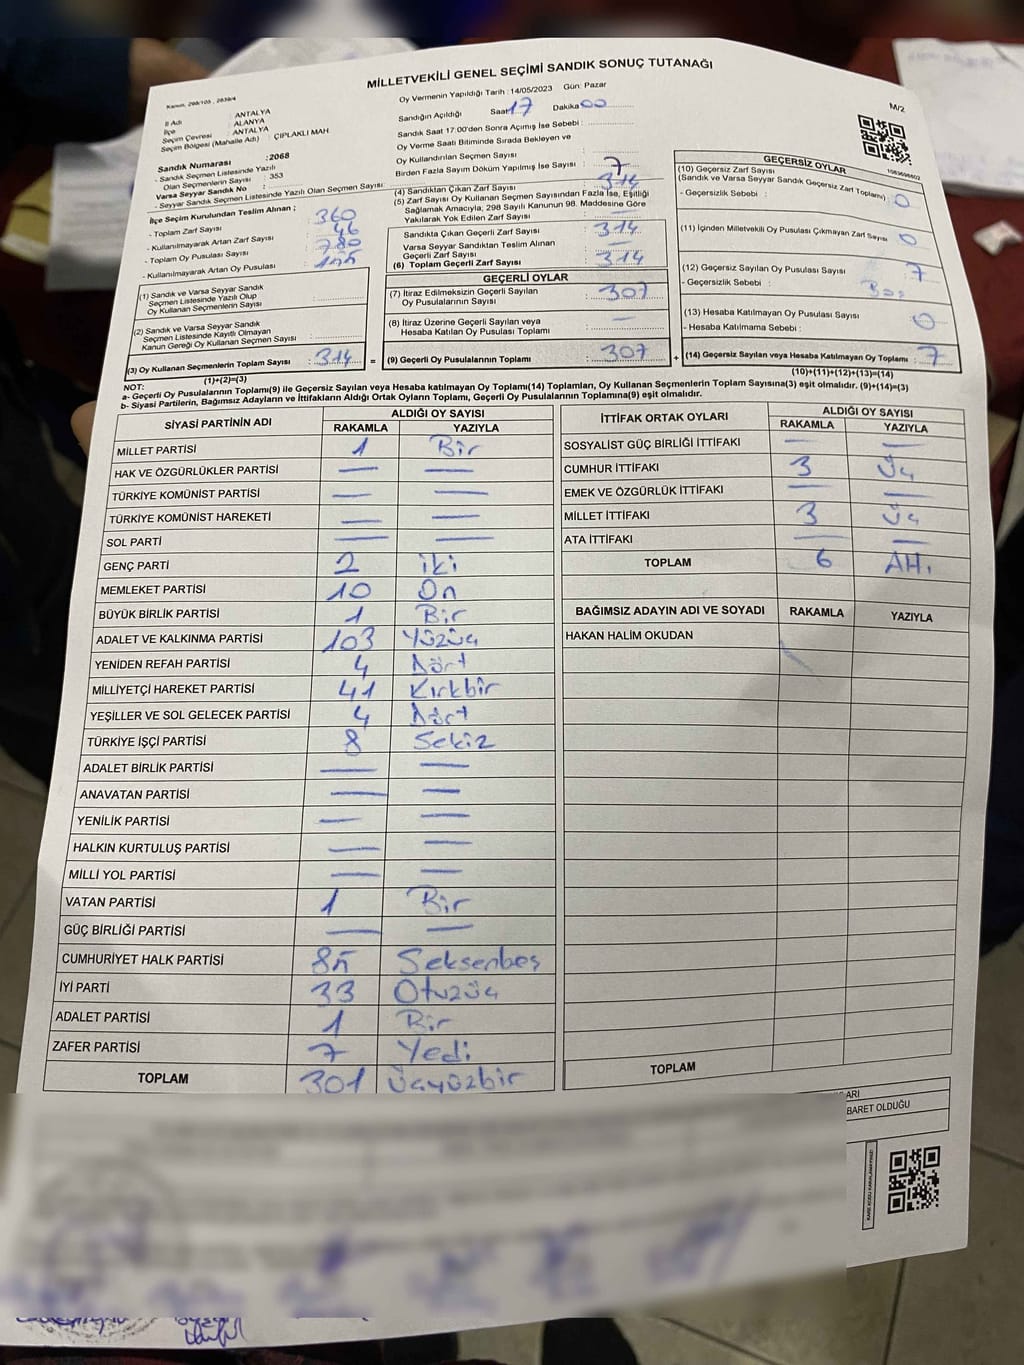 MİLLETVEKİLİ GENEL SEÇİMİ SANDIK SONUÇ TUTANAĞI
M/2
Oy Vermenin Yapıldığı Tarih : 14/05/2023 Gün: Pazar
İl Adı : ANTALYA
İlçe : ALANYA
Seçim Çevresi : ANTALYA
Seçim Bölgesi (Mahalle Adı) : ÇIPLAKLI MAH
Sandık Numarası : 2068
- Sandık Seçmen Listesinde Yazılı
Olan Seçmenlerin Sayısı : 353
Varsa Seyyar Sandık No :
- Seyyar Sandık Seçmen Listesinde Yazılı Olan Seçmen Sayısı:
İlçe Seçim Kurulundan Teslim Alınan ;
- Toplam Zarf Sayısı : 360
- Kullanılmayarak Artan Zarf Sayısı : 46
- Toplam Oy Pusulası Sayısı :
- Kullanılmayarak Artan Oy Pusulası :
(1) Sandık ve Varsa Seyyar Sandık
Seçmen Listesinde Yazılı Olup
Oy Kullanan Seçmenlerin Sayısı
(2) Sandık ve Varsa Seyyar Sandık
Seçmen Listesinde Kayıtlı Olmayan
Kanun Gereği Oy Kullanan Seçmen Sayısı
(3) Oy Kullanan Seçmenlerin Toplam Sayısı : 314 =
(1)+(2)=(3)
Sandığın Açıldığı Saat 17 Dakika 00
Sandık Saat 17:00'den Sonra Açımış İse Sebebi :
Oy Verme Saati Bitiminde Sırada Bekleyen ve
Oy Kullandırılan Seçmen Sayısı
Birden Fazla Sayım Döküm Yapılmış İse Sayısı : 7
(4) Sandıktan Çıkan Zarf Sayısı : 314
(5) Zarf Sayısı Oy Kullanan Seçmen Sayısından Fazla İse, Eşitliği
Sağlamak Amacıyla, 298 Sayılı Kanunun 98. Maddesine Göre
Yakılarak Yok Edilen Zarf Sayısı : —
Sandıkta Çıkan Geçerli Zarf Sayısı : 314
Varsa Seyyar Sandıktan Teslim Alınan
Geçerli Zarf Sayısı : —
(6) Toplam Geçerli Zarf Sayısı : 314
GEÇERLİ OYLAR
(7) İtiraz Edilmeksizin Geçerli Sayılan
Oy Pusulalarının Sayısı : 307
(8) İtiraz Üzerine Geçerli Sayılan veya
Hesaba Katılan Oy Pusulası Toplamı : —
(9) Geçerli Oy Pusulalarının Toplamı : 307 +
GEÇERSİZ OYLAR
(10) Geçersiz Zarf Sayısı
(Sandık ve Varsa Seyyar Sandık Geçersiz Zarf Toplamı) : 0
- Geçersizlik Sebebi :
(11) İçinden Milletvekili Oy Pusulası Çıkmayan Zarf Sayısı : 0
(12) Geçersiz Sayılan Oy Pusulası Sayısı : 7
- Geçersizlik Sebebi :
(13) Hesaba Katılmayan Oy Pusulası Sayısı : 0
- Hesaba Katılmama Sebebi :
(14) Geçersiz Sayılan veya Hesaba Katılmayan Oy Toplamı : 7
(10)+(11)+(12)+(13)=(14)
NOT:
a- Geçerli Oy Pusulalarının Toplamı(9) ile Geçersiz Sayılan veya Hesaba katılmayan Oy Toplamı(14) Toplamları, Oy Kullanan Seçmenlerin Toplam Sayısına(3) eşit olmalıdır. (9)+(14)=(3)
b- Siyasi Partilerin, Bağımsız Adayların ve İttifakların Aldığı Ortak Oyların Toplamı, Geçerli Oy Pusulalarının Toplamına(9) eşit olmalıdır.
SİYASİ PARTİNİN ADI ALDIĞI OY SAYISI
RAKAMLA YAZIYLA
MİLLET PARTİSİ 1 Bir
HAK VE ÖZGÜRLÜKLER PARTİSİ — —
TÜRKİYE KOMÜNİST PARTİSİ — —
TÜRKİYE KOMÜNİST HAREKETİ — —
SOL PARTİ — —
GENÇ PARTİ 2 iki
MEMLEKET PARTİSİ 10 On
BÜYÜK BİRLİK PARTİSİ 1 Bir
ADALET VE KALKINMA PARTİSİ 103 Yüzüç
YENİDEN REFAH PARTİSİ 4 Dört
MİLLİYETÇİ HAREKET PARTİSİ 41 Kırkbir
YEŞİLLER VE SOL GELECEK PARTİSİ 4 Dört
TÜRKİYE İŞÇİ PARTİSİ 8 Sekiz
ADALET BİRLİK PARTİSİ — —
ANAVATAN PARTİSİ — —
YENİLİK PARTİSİ — —
HALKIN KURTULUŞ PARTİSİ — —
MİLLİ YOL PARTİSİ — —
VATAN PARTİSİ 1 Bir
GÜÇ BİRLİĞİ PARTİSİ — —
CUMHURİYET HALK PARTİSİ 85 Seksenbeş
İYİ PARTİ 33 Otuzüç
ADALET PARTİSİ 1 Bir
ZAFER PARTİSİ 7 Yedi
TOPLAM 301 Üçyüzbir
İTTİFAK ORTAK OYLARI ALDIĞI OY SAYISI
RAKAMLA YAZIYLA
SOSYALİST GÜÇ BİRLİĞİ İTTİFAKI — —
CUMHUR İTTİFAKI 3 Üç
EMEK VE ÖZGÜRLÜK İTTİFAKI — —
MİLLET İTTİFAKI 3 Üç
ATA İTTİFAKI — —
TOPLAM 6 Altı
BAĞIMSIZ ADAYIN ADI VE SOYADI RAKAMLA YAZIYLA
HAKAN HALİM OKUDAN
TOPLAM
BARET OLDUĞU